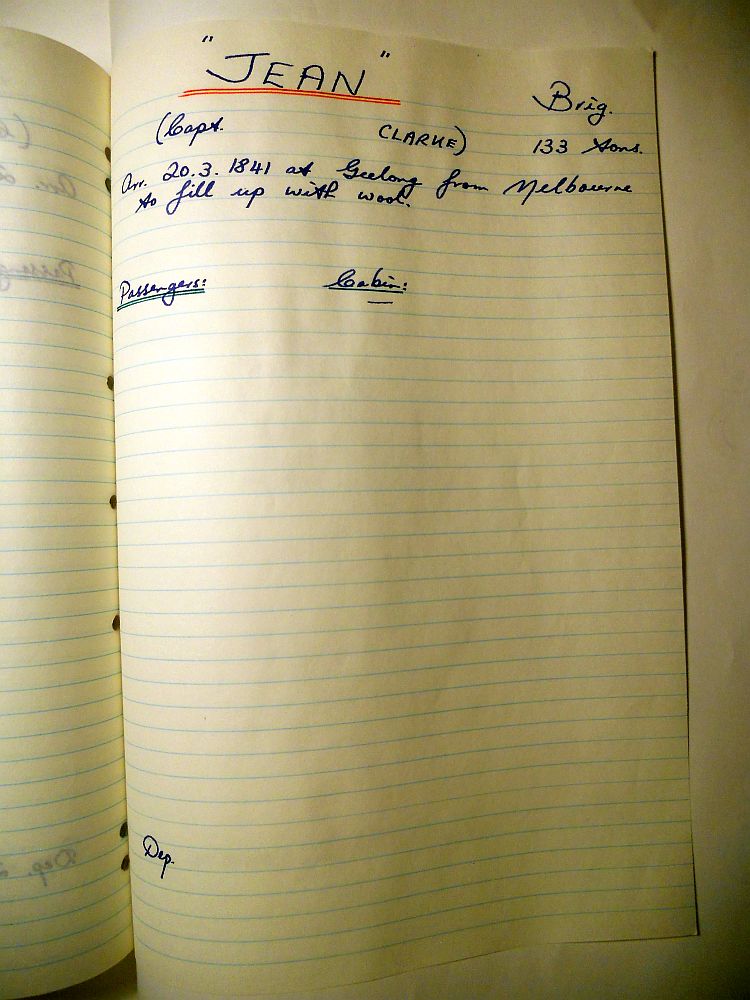 "JEAN"
Brig.
(Capt. CLARKE)
133 tons.
Arr. 20.3.1841 at Geelong from Melbourne
to fill up with wool.
Passengers: Cabin:
Dep.